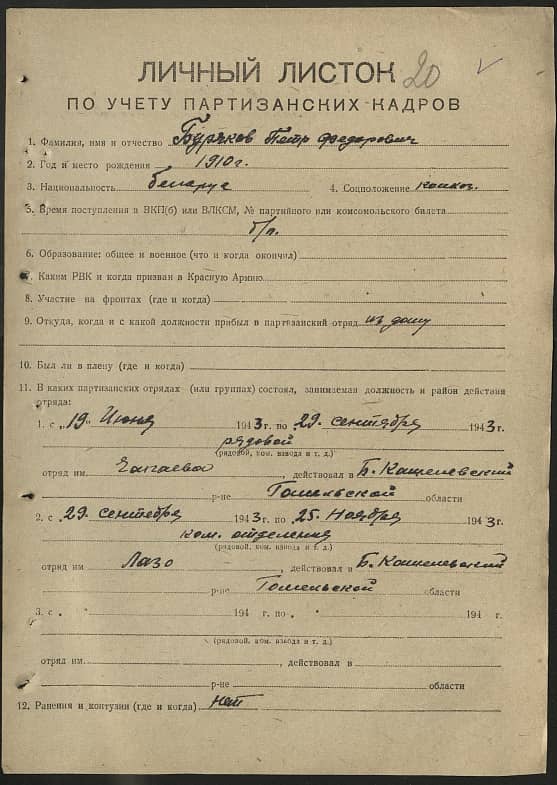 ЛИЧНЫЙ ЛИСТОК 20
ПО УЧЕТУ ПАРТИЗАНСКИХ КАДРОВ
1. Фамилия, имя и отчество Буряков Петр Федорович
2. Год и место рождения 1910 г.
3. Национальность беларус 4. Соцположение колхоз.
5. Время поступления в ВКП(б) или ВЛКСМ, № партийного или комсомольского билета
б/п.
6. Образование: общее и военное (что и когда окончил)
7. Каким РВК и когда призван в Красную Армию
8. Участие на фронтах (где и когда)
9. Откуда, когда и с какой должности прибыл в партизанский отряд из дому
10. Был ли в плену (где и когда)
11. В каких партизанских отрядах (или группах) состоял, занимаемая должность и район действия
отряда:
1. с „19" Июня 1943 г. по 29 сентября 1943 г.
рядовой
(рядовой, ком. взвода и т. д.)
отряд им. Чапаева, действовал в Б. Кошелевский
р-не Гомельской области
2. с 29 сентября 1943 г. по 25 Ноября 1943 г.
ком. отделения
(рядовой, ком. взвода и т. д.)
отряд им. Лазо, действовал в Б. Кошелевский
р-не Гомельской области
3. с 194 г. по 194 г.
(рядовой, ком. взвода и т. д.)
отряд им. , действовал в
р-не области
12. Ранения и контузии (где и когда) нет